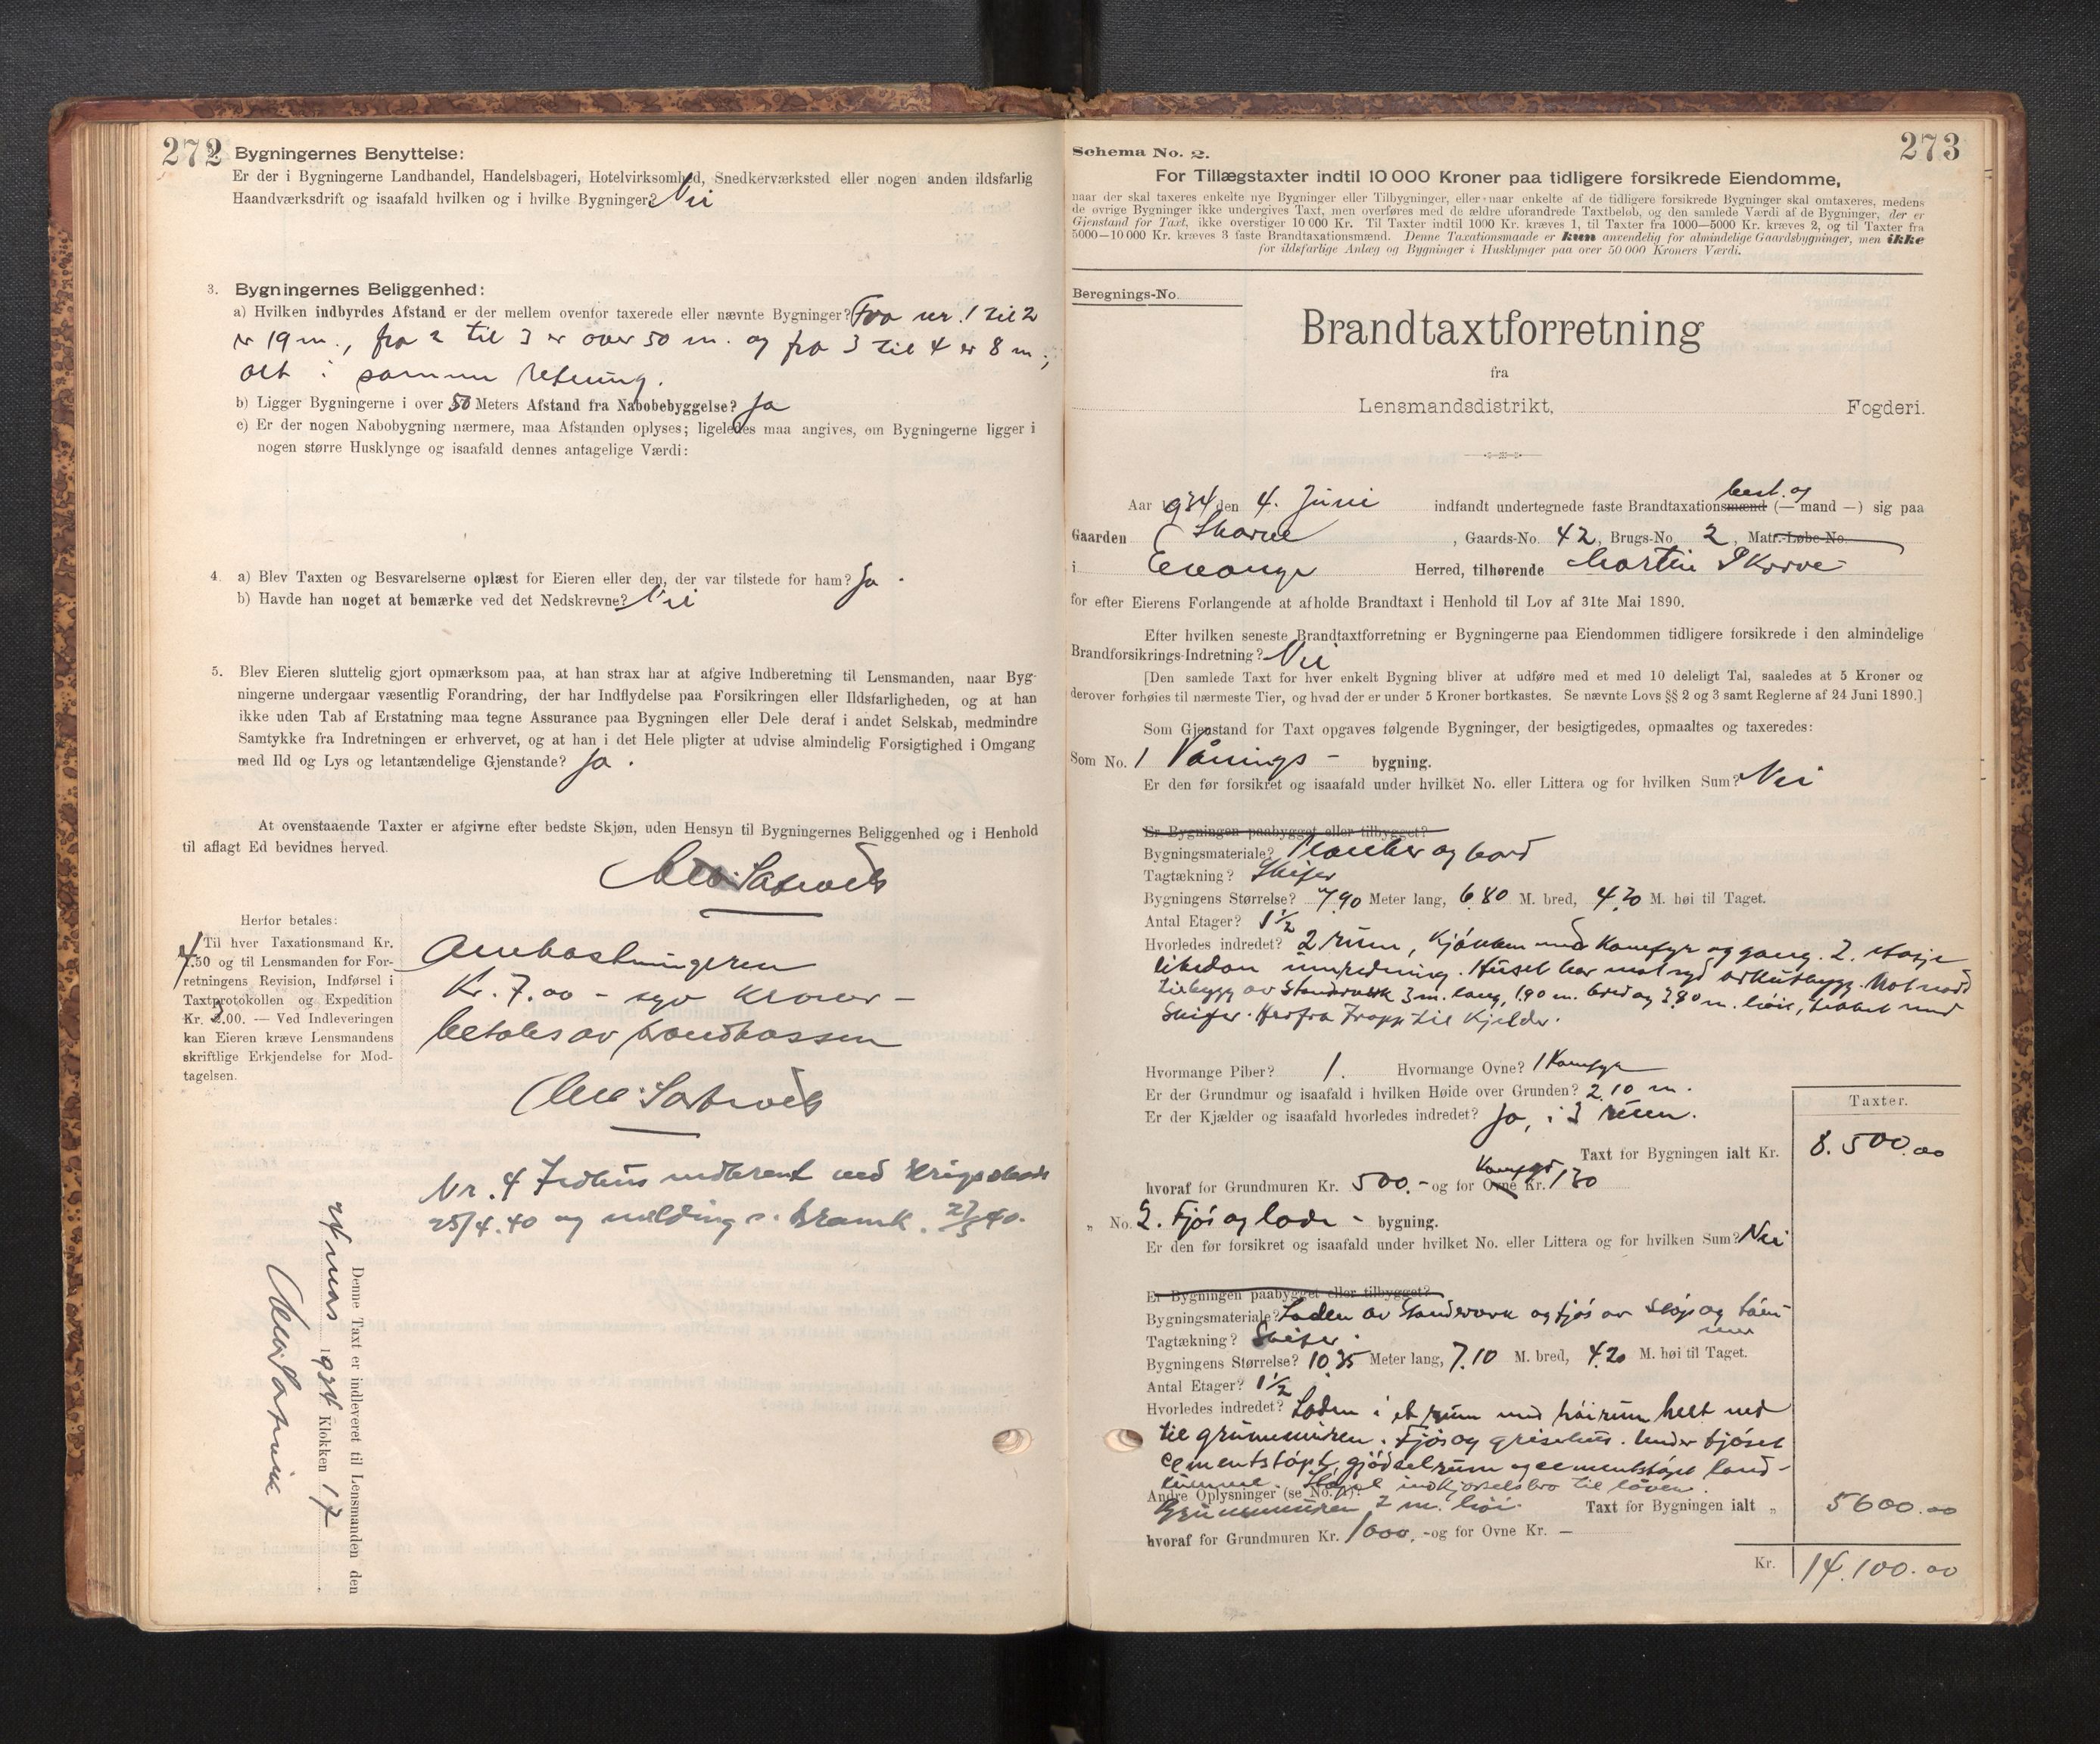 272
Bygningernes Benyttelse:
Er der i Bygningerne Landhandel, Handelsbageri, Hotelvirksomhed, Snedkerværksted eller nogen anden ildsfarlig
Haandværksdrift og isaafald hvilken og i hvilke Bygninger? Nei
3. Bygningernes Beliggenhed:
a) Hvilken indbyrdes Afstand er der mellem ovenfor taxerede eller nævnte Bygninger? Fra nr. 1 til 2
er 19 m., fra 2 til 3 er over 50 m. og fra 3 til 4 er 8 m.,
alt i samme retning.
b) Ligger Bygningerne i over 50 Meters Afstand fra Nabobebyggelse? Ja
c) Er der nogen Nabobygning nærmere, maa Afstanden oplyses; ligeledes maa angives, om Bygningerne ligger i
nogen større Husklynge og isaafald dennes antagelige Værdi:
4. a) Blev Taxten og Besvarelserne oplæst for Eieren eller den, der var tilstede for ham? Ja.
b) Havde han noget at bemærke ved det Nedskrevne? Nei
5. Blev Eieren sluttelig gjort opmærksom paa, at han strax har at afgive Indberetning til Lensmanden, naar Byg-
ningerne undergaar væsentlig Forandring, der har Indflydelse paa Forsikringen eller Ildsfarligheden, og at han
ikke uden Tab af Erstatning maa tegne Assurance paa Bygningen eller Dele deraf i andet Selskab, medmindre
Samtykke fra Indretningen er erhvervet, og at han i det Hele pligter at udvise almindelig Forsigtighed i Omgang
med Ild og Lys og letantændelige Gjenstande? Ja.
At ovenstaaende Taxter er afgivne efter bedste Skjøn, uden Hensyn til Bygningernes Beliggenhed og i Henhold
til aflagt Ed bevidnes herved.
Herfor betales:
Til hver Taxationsmand Kr.
4.50 og til Lensmanden for For-
retningens Revision, Indførsel i
Taxtprotokollen og Expedition
Kr. 3.00. — Ved Indleveringen
kan Eieren kræve Lensmandens
skriftlige Erkjendelse for Mod-
tagelsen.
Kr. 7.00 - syv kroner -
betales av
Nr. 4 Ildhus nedbrent ved
25/4.40 og melding s. 27/5 40.
Denne Taxt er indleveret til Lensmanden den
1934 Klokken 17
273
Schema No. 2.
For Tillægstaxter indtil 10 000 Kroner paa tidligere forsikrede Eiendomme,
naar der skal taxeres enkelte nye Bygninger eller Tilbygninger, eller naar enkelte af de tidligere forsikrede Bygninger skal omtaxeres, medens
de øvrige Bygninger ikke undergives Taxt, men overføres med de ældre uforandrede Taxtbeløb, og den samlede Værdi af de Bygninger, der er
Gjenstand for Taxt, ikke overstiger 10 000 Kr. Til Taxter indtil 1000 Kr. kræves 1, til Taxter fra 1000—5000 Kr. kræves 2, og til Taxter fra
5000—10 000 Kr. kræves 3 faste Brandtaxationsmænd. Denne Taxationsmaade er kun anvendelig for almindelige Gaardsbygninger, men ikke
for ildsfarlige Anlæg og Bygninger i Husklynger paa over 50 000 Kroners Værdi.
Beregnings-No.
Brandtaxtforretning
fra
Lensmandsdistrikt, Fogderi.
best. og
Aar 1934 den 4. Juni indfandt undertegnede faste Brandtaxationsmænd (— mand —) sig paa
Gaarden Skarve, Gaards-No. 42, Brugs-No. 2, Matr.-Løbe-No.
i Evanger Herred, tilhørende Martin Skorve
for efter Eierens Forlangende at afholde Brandtaxt i Henhold til Lov af 31te Mai 1890.
Efter hvilken seneste Brandtaxtforretning er Bygningerne paa Eiendommen tidligere forsikrede i den almindelige
Brandforsikrings-Indretning? Nei
[Den samlede Taxt for hver enkelt Bygning bliver at udføre med et med 10 deleligt Tal, saaledes at 5 Kroner og
derover forhøies til nærmeste Tier, og hvad der er under 5 Kroner bortkastes. Se nævnte Lovs §§ 2 og 3 samt Reglerne af 24 Juni 1890.]
Som Gjenstand for Taxt opgaves følgende Bygninger, der besigtigedes, opmaaltes og taxeredes:
Som No. 1 Vånings - bygning.
Er den før forsikret og isaafald under hvilket No. eller Littera og for hvilken Sum? Nei
Er Bygningen paabygget eller tilbygget?
Bygningsmateriale? Planker og bord
Tagtækning? Skifer
Bygningens Størrelse? 7.90 Meter lang, 6.80 M. bred, 4.20 M. høi til Taget.
Antal Etager? 1 1/2
Hvorledes indredet? 2 rum, kjøkken med komfyr og gang. 2. etasje
likedan innredning. Huset har mot syd arkutbygg. Mot nord
tilbygg av standverk 3 m. lang, 1.90 m. bred og 3.80 m. høit, tekket med
Skifer. Herfra trapp til kjelder.
Hvormange Piber? 1. Hvormange Ovne? 1 Komfyr
Er der Grundmur og isaafald i hvilken Høide over Grunden? 2.10 m.
Er der Kjælder og isaafald hvorledes indredet? Ja, i 3 rum.
Taxter.
Taxt for Bygningen ialt Kr. 8.500.00
Komfyr
hvoraf for Grundmuren Kr. 500.- og for Ovne Kr. 130
„ No. 2. Fjøs og lade - bygning.
Er den før forsikret og isaafald under hvilket No. eller Littera og for hvilken Sum? Nei
Er Bygningen paabygget eller tilbygget?
Bygningsmateriale? Laden av standverk og fjøs av støp og tøm-
mer
Tagtækning? Skifer.
Bygningens Størrelse? 10.35 Meter lang, 7.10 M. bred, 4.20 M. høi til Taget.
Antal Etager? 1 1/2
Hvorledes indredet? Laden i et rum med høirum helt ned
til grunnmuren. Fjøs og grisehus. Under fjøset
cementstøpt gjødselrum og cementstøpt land-
kumme. innkjørselsbro til løven.
Andre Oplysninger (se No. )?
Grunnmuren 2 m. høi. Taxt for Bygningen ialt „ 5600.00
hvoraf for Grundmuren Kr. 1000.- og for Ovne Kr. —
Kr. 14.100.00